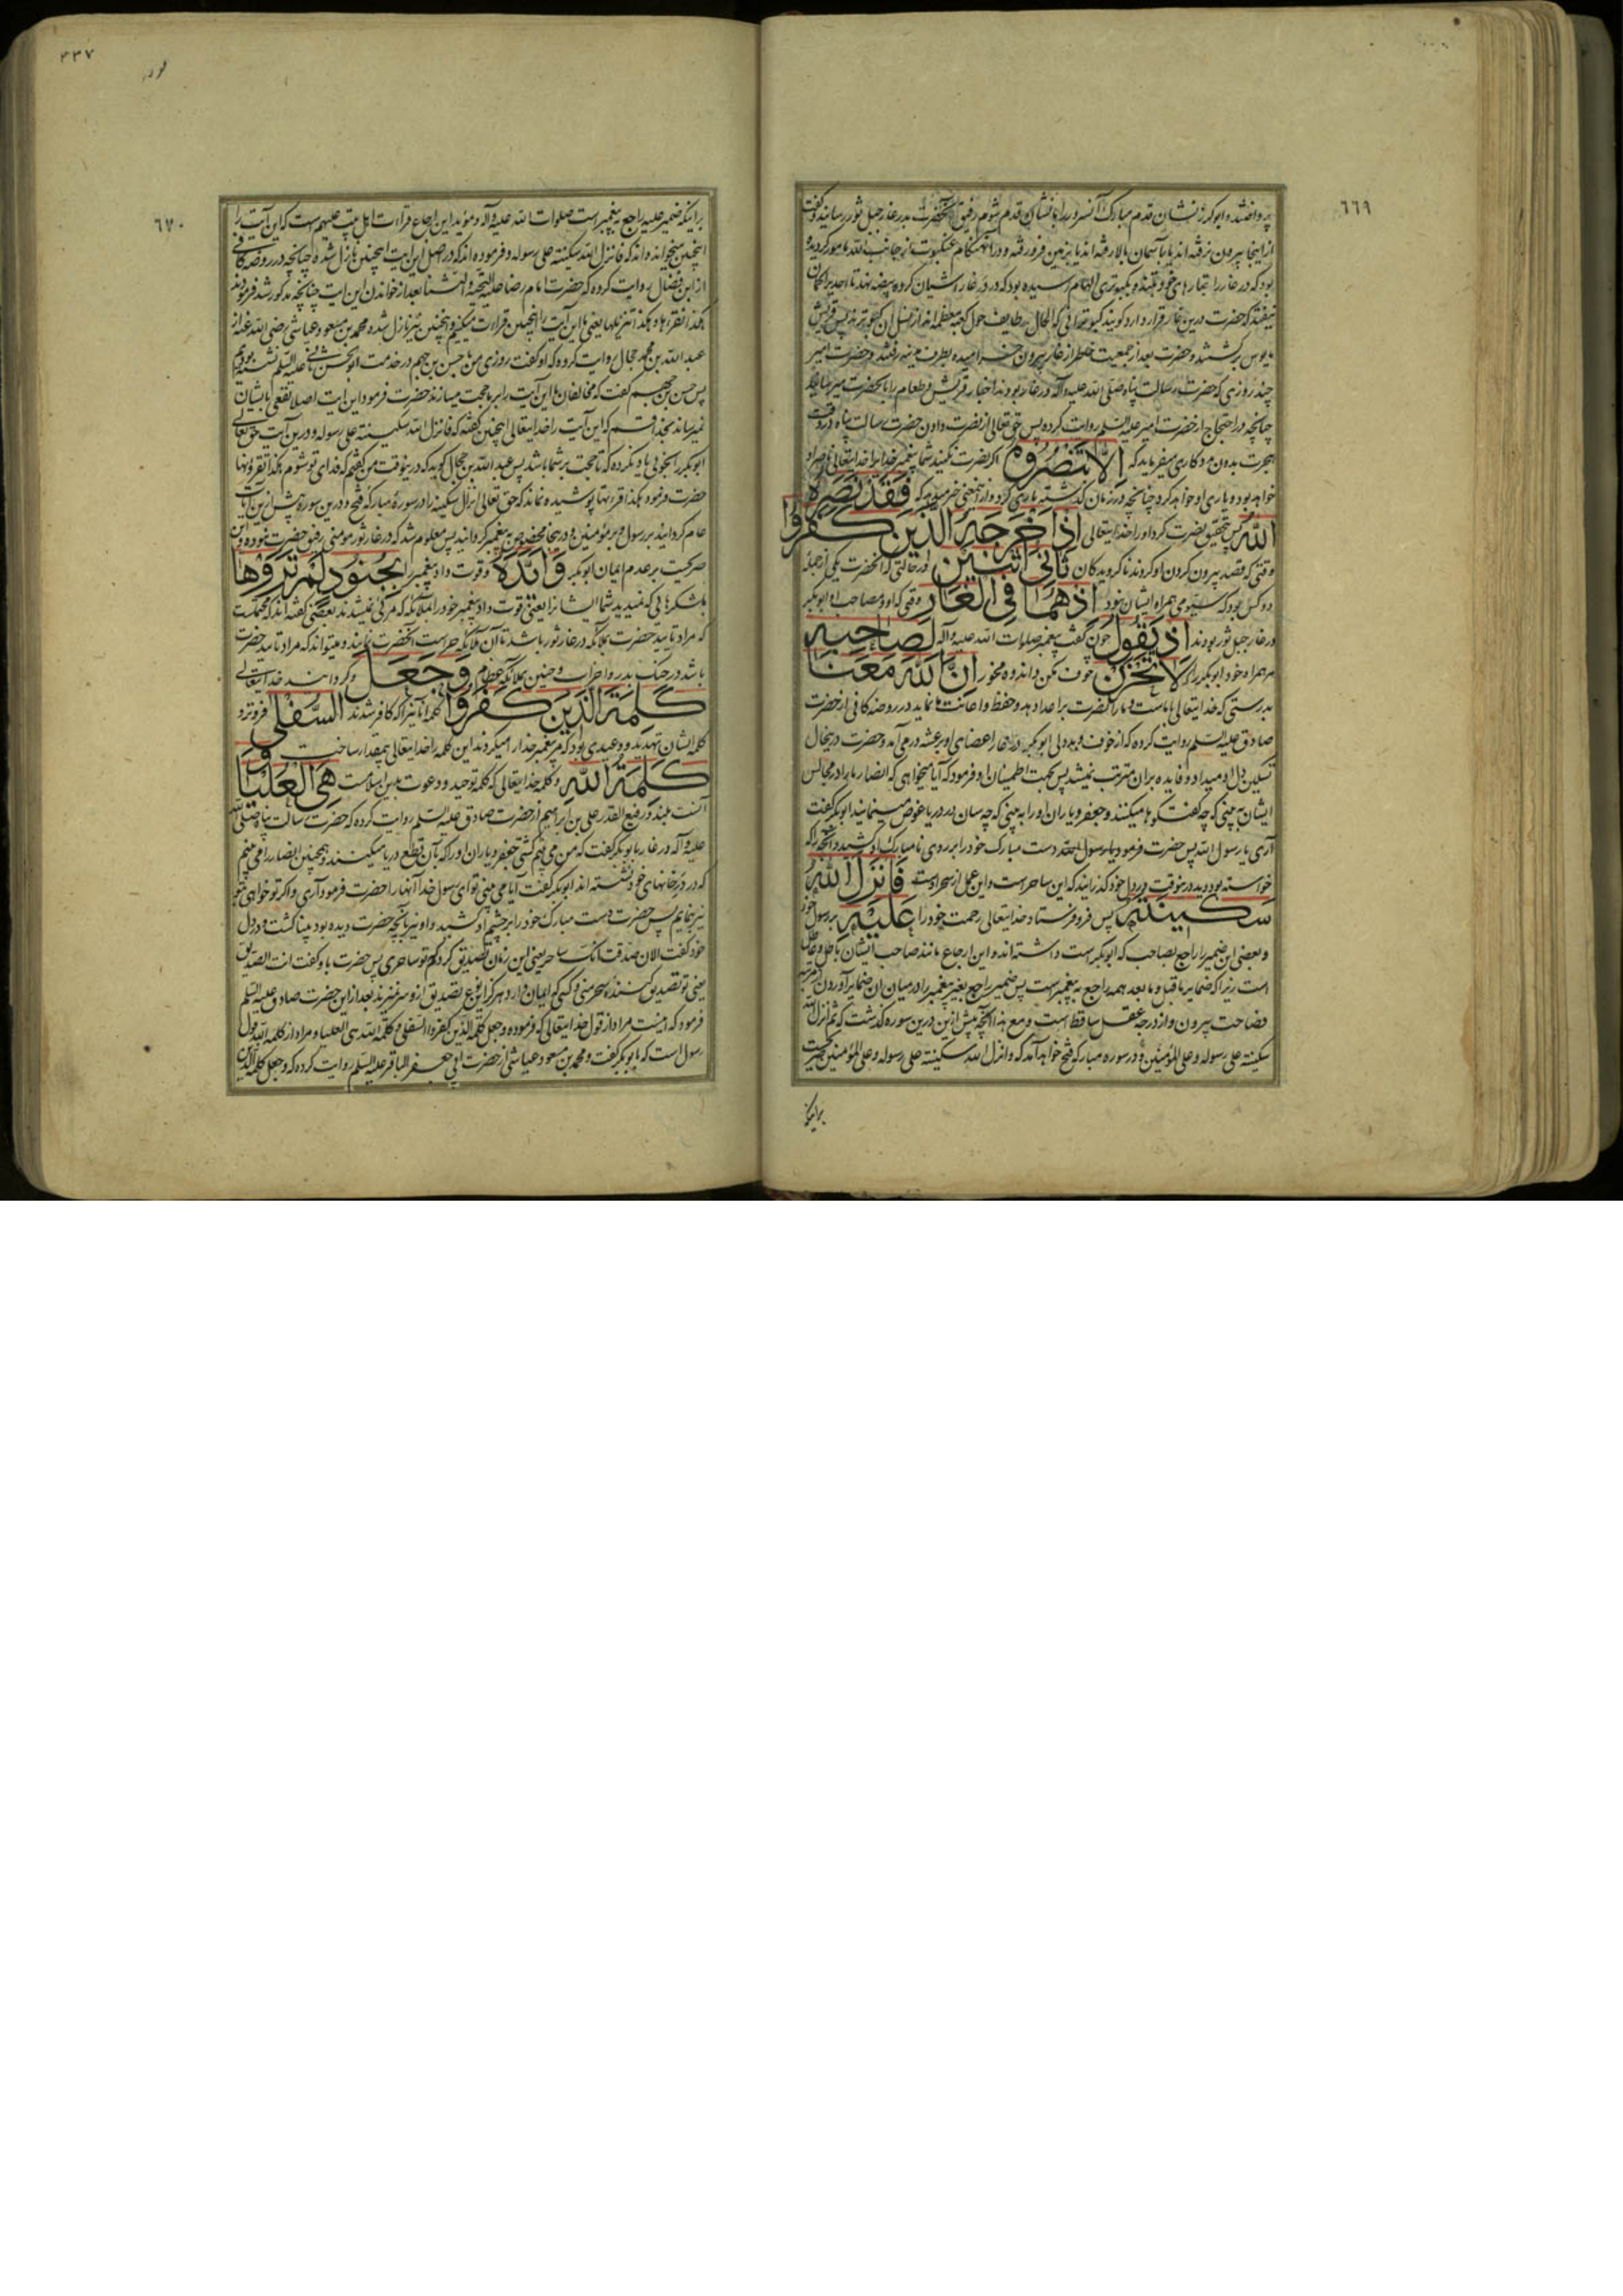 ٦٦٩
از اینجا بیرون نرفته اند یا بآسمان بالا رفته اند یا بزمین فرو رفته و در آنهنگام عنکبوت از جانب الله مامور کردیده
مایوس برکشتند و حضرت بعد از جمعیت خاطر از غار بیرون خرامیده بطرف مدینه رفتند و حضرت امیر
چند روزی که حضرت رسالت پناه صلی الله علیه وآله در غار بودند اخبار قریش و طعام را بآنحضرت میرسانید
چنانچه در احتجاج از حضرت امیر علیه السلم روایت کرده پس حق تعالی از نصرت دادن حضرت رسالت پناه در وقت
هجرت بدون مددکاری میفرماید که اِلَّا تَنْصُرُوهُ اکر نصرت نکنید شما پیغمبر خدا را خدایتعالی ناصر او
خواهد بود و یاری او خواهد کرد چنانچه در زمان کذشته یاری کرد و از اینمعنی خبر میدهد که فَقَدْ نَصَرَهُ
اللّهُ پس بتحقیق نصرت کرد او را خدایتعالی اِذْ اَخْرَجَهُ الَّذِینَ کَفَرُوا
وقتی که قصد بیرون کردن او کردند ناکرویدکان ثَانِیَ اثْنَیْنِ در حالتی که آنحضرت یکی از جمله
دو کس بود که سیومی همراه ایشان نبود اِذْ هُمَا فِی الْغَارِ وقتی که او و مصاحب او ابوبکر
در غار جبل ثور بودند اِذْ یَقُولُ چون کفت پیغمبر صلوات الله علیه وآله لِصَاحِبِهِ
مر همراه خود ابوبکر را که لَا تَحْزَنْ خوف مکن و اندوه مخور اِنَّ اللّهَ مَعَنَا
بدرستی که خدایتعالی با ماست و ما را نصرت بر اعدا دهد و حفظ و اعانت ما نماید در روضه کافی از حضرت
صادق علیه السلم روایت کرده که از خوف و بددلی ابوبکر در غار اعضای او برعشه در می آمد و حضرت در ینحال
تسکین دل او میداد و فایده بران مترتب نمیشد پس بجهت اطمینان او فرمود که آیا میخواهی که انصار را در مجالس
ایشان به بینی که چه کفت و کوها میکنند و جعفر و یاران او را به بینی که چه سان در دریا غوص مینمایند ابوبکر کفت
آری یا رسول الله پس حضرت فرمود دست مبارک خود را بر روی نامبارک او کشید و آنچه را که
خواسته بود دید در ینوقت در دل خود کذرانید که این ساحر است و این عمل از سحر اوست فَاَنْزَلَ اللّهُ
سَکِینَتَهُ پس فرو فرستاد خدایتعالی رحمت خود را عَلَیْهِ بر رسول خود
و بعضی این ضمیر را راجع بصاحب که ابوبکر است داشته اند و این ارجاع مانند صاحب ایشان باطل و عاطل
است زیرا که ضمایر ماقبل و مابعد همه راجع به پیغمبر است پس ضمیر راجع بغیر پیغمبر را در میان ان ضمایر آوردن از مرتبه
فصاحت بیرون و از درجه عقل ساقط است و مع هذا آنچه پیش ازین درین سوره کذشت که ثم انزل الله
سکینته علی رسوله و علی المؤمنین و در سوره مبارکه فتح خواهد آمد که و انزل الله سکینته علی رسوله و علی المؤمنین
براینکه
٤٣٧
٦٧٠
براینکه ضمیر علیه راجع به پیغمبر است صلوات الله علیه وآله و مؤید این ارجاع قراءت اهل بیت علیهم است که این آیت را
اینچنین میخوانده اند که فانزل الله سکینته علی رسوله و فرموده اند که در اصل این آیت اینچنین نازل شده چنانچه در روضه کافی
از ابن فضال روایت کرده که حضرت امام رضا علیه التحیه والثنا بعد از خواندن این آیت چنانچه مذکور شد فرمودند
هکذا نقرءها و هکذا تنزیلها یعنی ما این آیت را اینچنین قراءت میکنیم و اینچنین نیز نازل شده محمد بن مسعود عیاشی رضی الله عنه از
عبدالله بن محمد حجال روایت کرده که او کفت روزی من با حسن بن جهم در خدمت ابوالحسن ثانی علیه السلم نشسته بودیم
پس حسن بن جهم کفت که مخالفان ما این آیت را بر ما حجت میسازند حضرت فرمود این آیت اصلا نفعی بایشان
نمیرساند بخدا قسم که این آیت را خدایتعالی اینچنین کفته که فانزل الله سکینته علی رسوله و درین آیت حق تعالی
ابوبکر را بخوبی یاد نکرده که تا حجت بر شما باشد پس عبدالله بن حجال کوید که در ینوقت من کفتم که فدای تو شوم هکذا تقرؤنها
حضرت فرمود هکذا اقرءنها پوشیده نماند که حق تعالی انزال سکینه را در سوره مبارکه فتح و درین سوره پیش ازین آیت
عام کردانید بر رسول و بر مؤمنین و در ینجا مخصوص به پیغمبر کردانید پس معلوم شد که در غار ثور مومنی رفیق حضرت نبوده و این
صریحست بر عدم ایمان ابوبکر وَاَیَّدَهُ و قوت داد پیغمبر را بِجُنُودٍ لَمْ تَرَوْهَا
بلشکرهایی که ندیدید شما ایشانرا یعنی قوت داد پیغمبر خود را بملائکه که مرئی نمیشدند بعضی کفته اند که ممکنست
که مراد تایید حضرت بملائکه در غار ثور باشد تا آن ملائکه حراست آنحضرت نمایند و میتواند که مراد تایید حضرت
باشد در جنک بدر و احزاب و حنین بملائکه عظام وَجَعَلَ و کردانید خدایتعالی
کَلِمَةَ الَّذِینَ کَفَرُوا کلمه آنانرا که کافر شدند السُّفْلَی فروتر و
کلمه ایشان تهدید و وعیدی بود که مر پیغمبر خدا را میکردند این کلمه را خدایتعالی بیمقدار ساخت وَ
کَلِمَةُ اللّهِ و کلمه خدایتعالی که کلمه توحید و دعوت بدین اسلامست هِیَ الْعُلْیَا
آنست بلند و رفیع القدر علی بن ابراهیم از حضرت صادق علیه السلم روایت کرده که حضرت رسالت پناه صلی الله
علیه وآله در غار با ابوبکر کفت که من می بینم کشتی جعفر و یاران او را که بآن قطع دریا میکنند و همچنین انصار را می بینم
که در درخانهای خود نشسته اند ابوبکر کفت آیا می بینی تو ای رسول خدا آنها را حضرت فرمود آری و اکر تو خواهی بتو
نیز بنمایم پس حضرت دست مبارک خود را بر چشم او کشید و او نیز بآنچه حضرت دیده بود بینا کشت و در دل
خود کفت الان صدقت انک ساحر یعنی این زمان تصدیق کردم که تو ساحری پس حضرت باو کفت انت الصدیق
یعنی تو تصدیق کننده سحر منی و کسی که ایمان دارد هرکز این نوع تصدیق از و سر نمیزند بعد از این حضرت صادق علیه السلم
فرمود که اینست مراد از قول خدایتعالی که فرموده و جعل کلمة الذین کفروا السفلی و کلمة الله هی العلیا و مراد از کلمة الله قول
رسول است که با ابوبکر کفت و محمد بن مسعود عیاشی از حضرت ابی جعفر الباقر علیه السلم روایت کرده که و جعل کلمة الذین